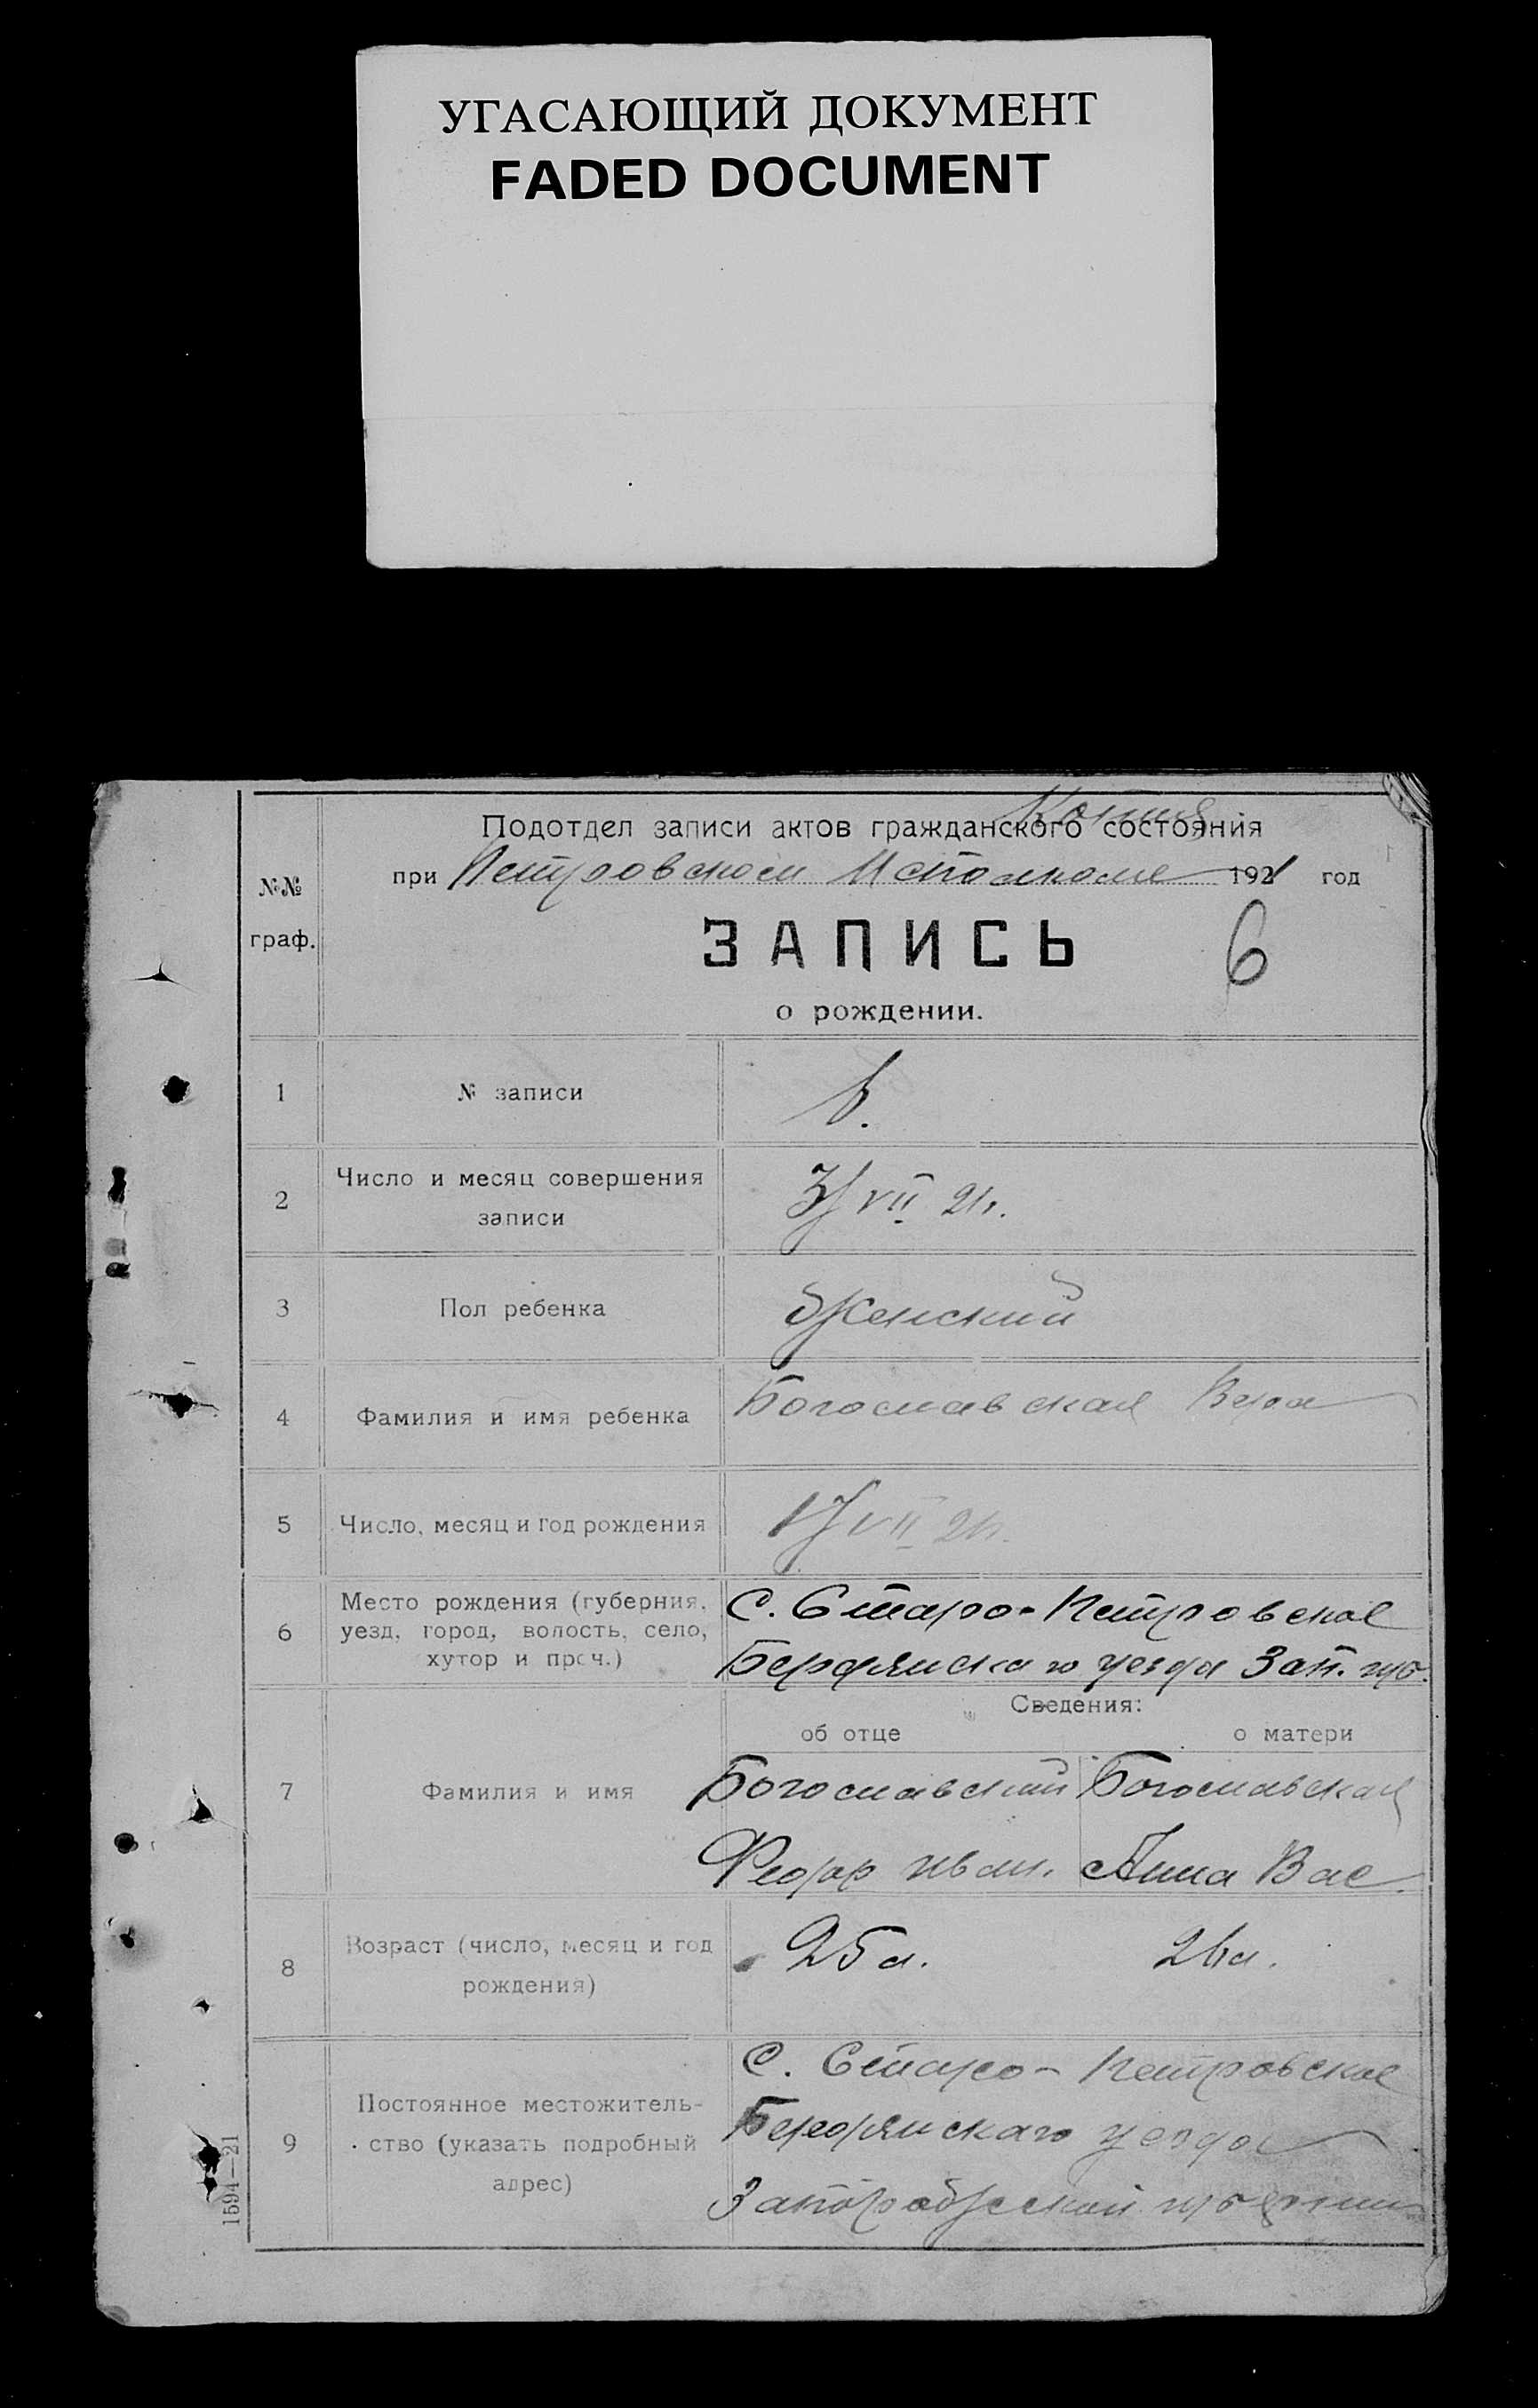 УГАСАЮЩИЙ ДОКУМЕНТ
FADED DOCUMENT
Копия
Подотдел записи актов гражданского состояния
при Петровском Исполкоме 1921 год
№№
граф.
ЗАПИСЬ
6
о рождении.
1 № записи 6.
2 Число и месяц совершения
записи
3/VII 21г.
3 Пол ребенка Женский
4 Фамилия и имя ребенка Богославская Вера
5 Число, месяц и год рождения 1/VII 21г.
6 Место рождения (губерния,
уезд, город, волость, село,
хутор и проч.)
С. Старо-Петровское
Бердянскаго уезда Зап. губ.
Сведения:
об отце о матери
7 Фамилия и имя
Богославский Богославская
Федор Иван. Анна Вас.
8 Возраст (число, месяц и год
рождения)
25 л. 26 л.
9 Постоянное местожитель-
ство (указать подробный
адрес)
С. Старо-Петровское
Бердянскаго уезда
Запорожской губернии
1594—21